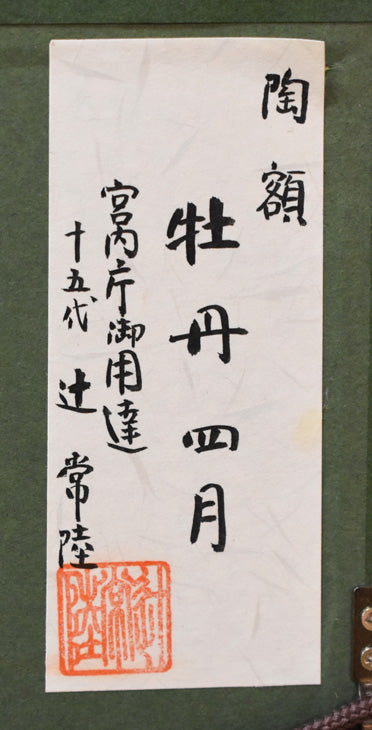 陶額
牡丹四月
宮内庁御用達
十五代 辻 常陸